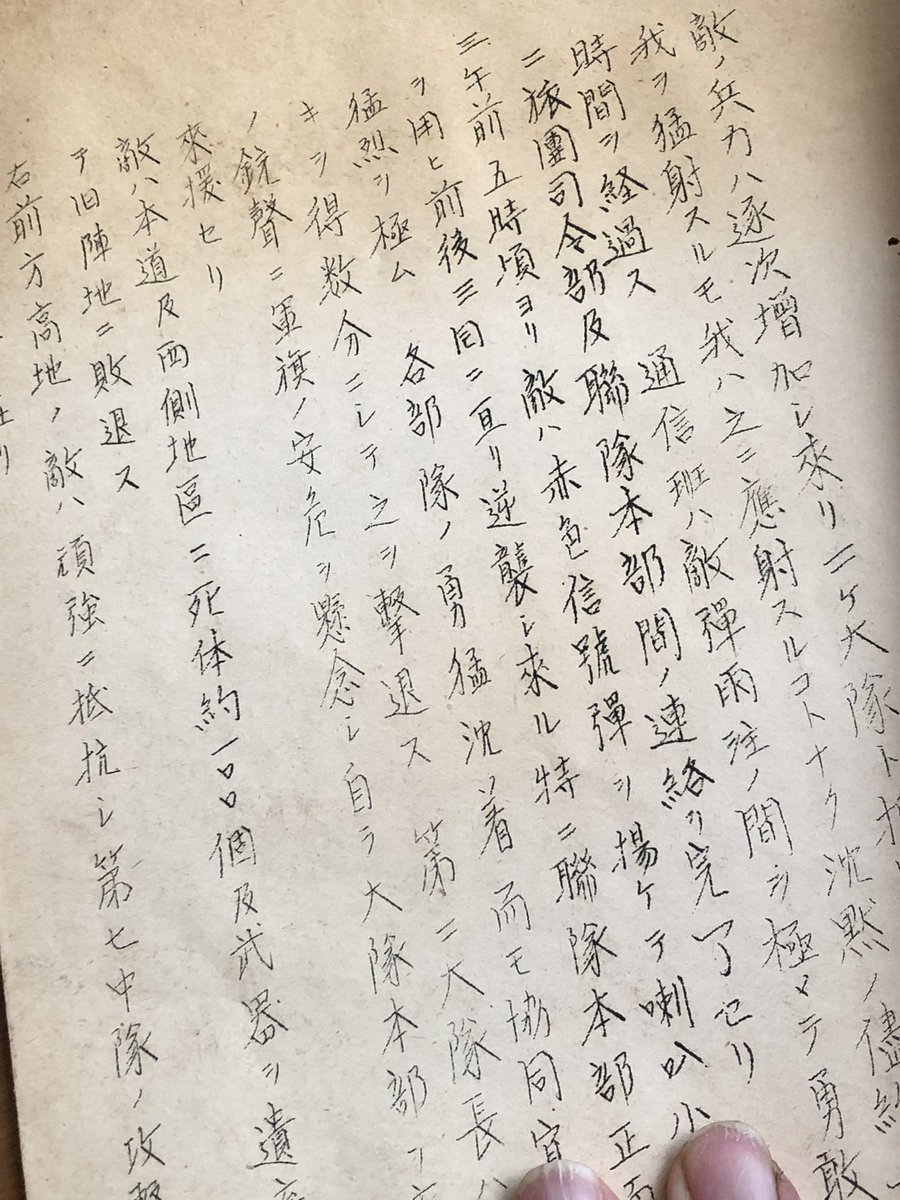 敵ノ兵力ハ逐次増加シ來リ二ケ大隊ト
我ヲ猛射スルモ我ハ之ニ應射スルコトナク沈黙ノ儘約
時間ヲ経過ス 通信班ハ敵彈雨注ノ間ヲ極メテ勇敢
ニ旅團司令部及聯隊本部間ノ連絡ヲ完了セリ
三、午前五時頃ヨリ敵ハ赤色信號彈ヲ揚ケテ喇叭小
ヲ用ヒ前後三回ニ亘リ逆襲シ來ル特ニ聯隊本部正面
猛烈ヲ極ム 各部隊ノ勇猛沈着而モ協同宜
キヲ得数分ニシテ之ヲ撃退ス 第二大隊長ハ
ノ銃聲ニ軍旗ノ安危ヲ懸念シ自ラ大隊本部ヲ
來援セリ
敵ハ本道及西側地區ニ死体約一〇〇個及武器ヲ遺
テ旧陣地ニ敗退ス
右前方高地ノ敵ハ頑強ニ抵抗シ第七中隊ノ攻撃